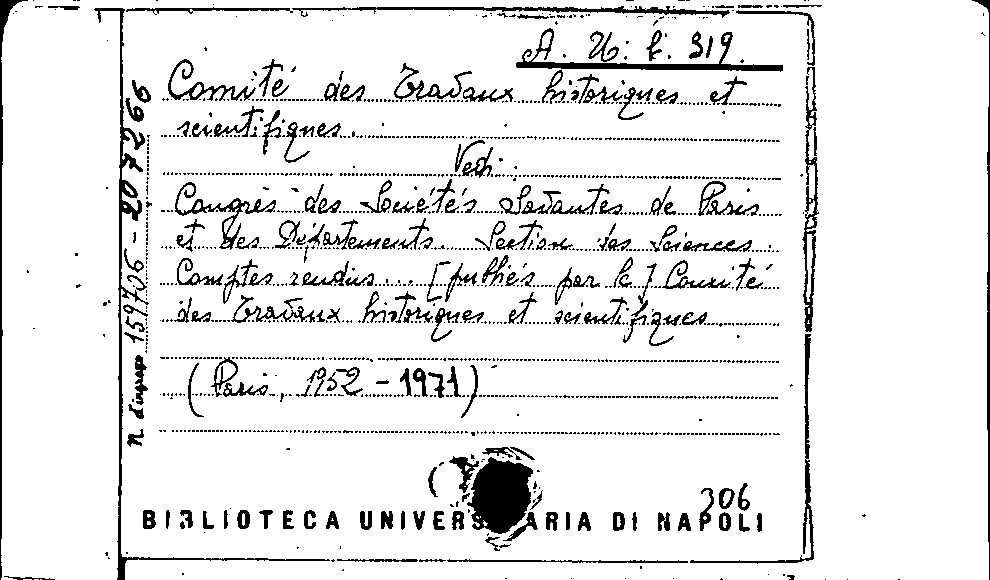 A. U. f. 319.
Comité des Travaux historiques et
scientifiques.
Vedi:
Congrès des Sociétés Savantes de Paris
et des Départements. Section des Sciences.
Comptes rendus... [publiés par le] Comité
des Travaux historiques et scientifiques.
(Paris, 1952 - 1971)
n. d'ingresso 159706 - 207266
306
BIBLIOTECA UNIVERSITARIA DI NAPOLI